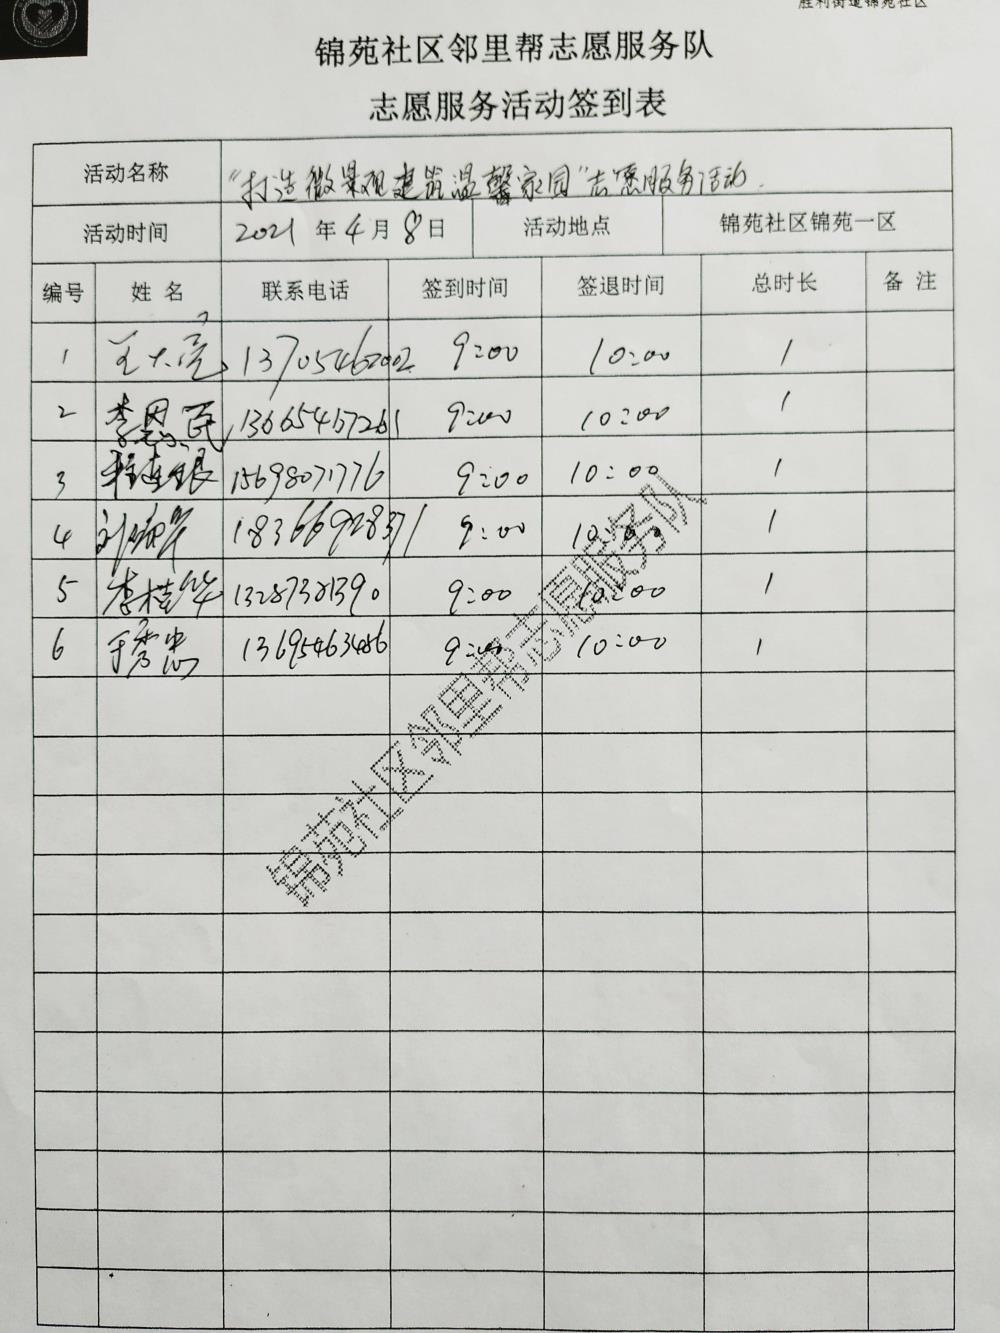 胜利街道锦苑社区
锦苑社区邻里帮志愿服务队
志愿服务活动签到表
活动名称 "打造微景观建筑温馨家园"志愿服务活动.
活动时间 2021 年 4 月 8 日 活动地点 锦苑社区锦苑一区
编号 姓 名 联系电话 签到时间 签退时间 总时长 备 注
1 王大亮 13705462002 9:00 10:00 1
2 李恩民 13665457261 9:00 10:00 1
3 15698071776 9:00 10:00 1
4 18366928371 9:00 10:00 1
5 李桂华 13287381390 9:00 10:00 1
6 于秀忠 13695463486 9:00 10:00 1
锦苑社区邻里帮志愿服务队